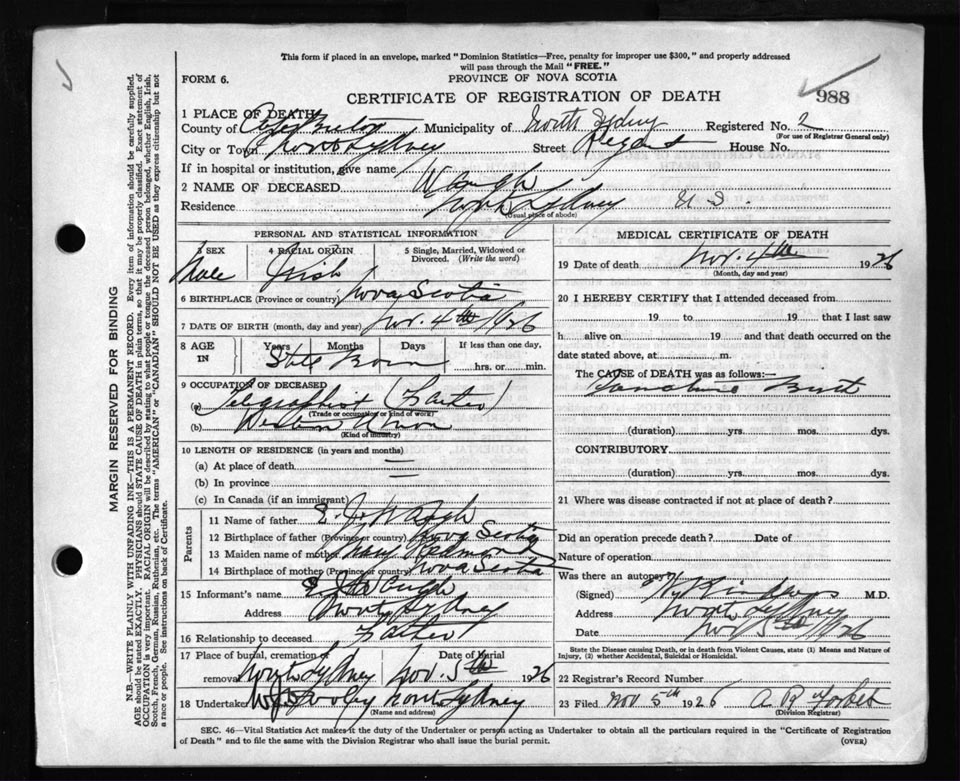 This form if placed in an envelope, marked "Dominion Statistics—Free, penalty for improper use $300," and properly addressed
will pass through the Mail "FREE."
FORM 6.
PROVINCE OF NOVA SCOTIA
CERTIFICATE OF REGISTRATION OF DEATH
988
1 PLACE OF DEATH
County of Cape Breton Municipality of North Sydney Registered No. 2
(For use of Registrar General only)
City or Town North Sydney Street Regent House No.
If in hospital or institution, give name
2 NAME OF DECEASED Waugh
Residence North Sydney N.S.
(Usual place of abode)
PERSONAL AND STATISTICAL INFORMATION
3 SEX 4 RACIAL ORIGIN 5 Single, Married, Widowed or Divorced. (Write the word)
Male Irish
6 BIRTHPLACE (Province or country) Nova Scotia
7 DATE OF BIRTH (month, day and year) Nov. 4th 1926
8 AGE IN Years Months Days If less than one day,
Still Born hrs. or min.
9 OCCUPATION OF DECEASED
(a) Telegraphist (Father)
(Trade or occupation or kind of work)
(b) Western Union
(Kind of industry)
10 LENGTH OF RESIDENCE (in years and months)
(a) At place of death
(b) In province
(c) In Canada (if an immigrant)
Parents
11 Name of father E. J. Waugh
12 Birthplace of father (Province or country) Nova Scotia
13 Maiden name of mother Mary Redmond
14 Birthplace of mother (Province or country) Nova Scotia
15 Informant's name E J Waugh
Address North Sydney
16 Relationship to deceased Father
17 Place of burial, cremation or removal North Sydney Date of Burial Nov. 5th 1926
18 Undertaker Dooley North Sydney
(Name and address)
MEDICAL CERTIFICATE OF DEATH
19 Date of death Nov. 4th 1926
(Month, day and year)
20 I HEREBY CERTIFY that I attended deceased from
19 to 19 that I last saw
h alive on 19 and that death occurred on the
date stated above, at m.
The CAUSE OF DEATH was as follows:—
Birth
(duration) yrs. mos. dys.
CONTRIBUTORY.
(duration) yrs. mos. dys.
21 Where was disease contracted if not at place of death?
Did an operation precede death? Date of
Nature of operation
Was there an autopsy?
(Signed) M.D.
Address North Sydney
Date Nov 5th 1926
State the Disease causing Death, or in death from Violent Causes, state (1) Means and Nature of
Injury, (2) whether Accidental, Suicidal or Homicidal.
22 Registrar's Record Number
23 Filed Nov 5th 1926 A. R. Forbes
(Division Registrar)
SEC. 46—Vital Statistics Act makes it the duty of the Undertaker or person acting as Undertaker to obtain all the particulars required in the "Certificate of Registration
of Death" and to file the same with the Division Registrar who shall issue the burial permit.
(OVER)
MARGIN RESERVED FOR BINDING
N.B.—WRITE PLAINLY WITH UNFADING INK—THIS IS A PERMANENT RECORD. Every item of information should be carefully supplied.
AGE should be stated EXACTLY. PHYSICIANS should STATE CAUSE OF DEATH in plain terms, so that it may be properly classified. Exact statement of
OCCUPATION is very important. RACIAL ORIGIN will be described by stating to what people or tongue the deceased person belonged, whether English, Irish,
Scotch, French, German, Russian, Ruthenian, etc. The terms "AMERICAN" or "CANADIAN" SHOULD NOT BE USED as they express citizenship but not
a race or people. See instructions on back of Certificate.